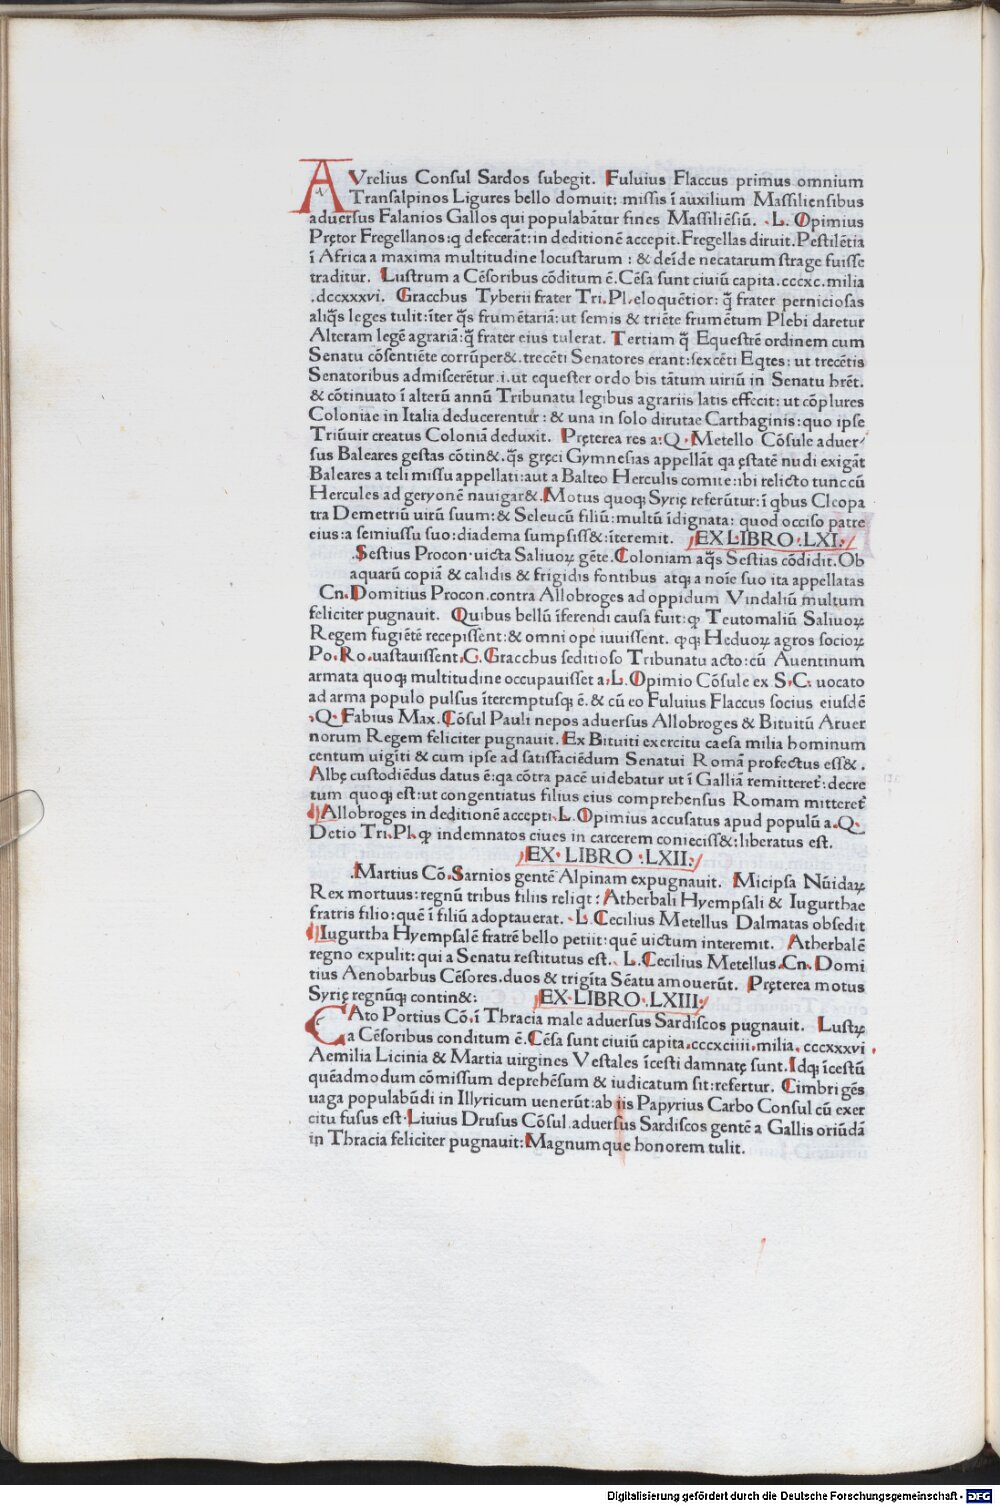 AVrelius Conſul Sardos ſubegit. Fuluius Flaccus primus omnium
Tranſalpinos Ligures bello domuit: miſſis ĩ auxilium Maſſilienſibus
aduerſus Falanios Gallos qui populabãtur fines Maſſiliẽſiũ. .L. Opimius
Prętor Fregellanos:q̃ defecerãt:in deditionẽ accepit.Fregellas diruit.Peſtilẽtia
ĩ Africa a maxima multitudine locuſtarum : & deĩde necatarum ſtrage fuiſſe
traditur. Luſtrum a Cẽſoribus cõditum ẽ.Cẽſa ſunt ciuiũ capita.cccxc.milia
.dccxxxvi. Gracchus Tyberii frater Tri.Pl.eloquẽtior: q̃ frater pernicioſas
aliq̃s leges tulit:ĩter q̃s frumẽtariã:ut ſemis & triẽte frumẽtum Plebi daretur
Alteram legẽ agrariã:q̃ frater eius tulerat. Tertiam q̃ Equeſtrẽ ordinem cum
Senatu cõſentiẽte corrũper&.trecẽti Senatores erant:ſexcẽti Eqtes: ut trecẽtis
Senatoribus admiſcerẽtur.i.ut equeſter ordo bis tãtum uiriũ in Senatu hrẽt.
& cõtinuato ĩ alterũ annũ Tribunatu legibus agrariis latis effecit: ut cõplures
Coloniae in Italia deducerentur : & una in ſolo dirutae Carthaginis:quo ipſe
Triũuir creatus Coloniã deduxit. Pręterea res a:Q.Metello Cõſule aduer⸗
ſus Baleares geſtas cõtin&.q̃s gręci Gymneſias appellãt qa ęſtatẽ nudi exigãt
Baleares a teli miſſu appellati:aut a Balteo Herculis comite:ibi relicto tunc cũ
Hercules ad geryonẽ nauigar&.Motus quoqꝫ Syrię referũtur:ĩ qbus Cleopa
tra Demetriũ uirũ ſuum:& Seleucũ filiũ:multũ ĩdignata: quod occiſo patre
eius:a ſemiuſſu ſuo:diadema ſumpſiſſ&:ĩteremit. EX LIBRO .LXI.
.Seſtius Procon.uicta Saliuoꝝ gẽte.Coloniam aq̃s Seſtias cõdidit.Ob
aquarũ copiã & calidis & frigidis fontibus atqꝫ a noĩe ſuo ita appellatas
Cn.Domitius Procon.contra Allobroges ad oppidum Vindaliũ multum
feliciter pugnauit. Quibus bellũ ĩferendi cauſa fuit:ꝙ Teutomaliũ Saliuoꝝ
Regem fugiẽtẽ recepiſſent:& omni ope iuuiſſent. ꝙqꝫ Heduoꝝ agros ſocioꝝ
Po.Ro.uaſtauiſſent.C.Gracchus ſeditioſo Tribunatu acto:cũ Auentinum
armata quoqꝫ multitudine occupauiſſet a.L.Opimio Cõſule ex S.C. uocato
ad arma populo pulſus ĩteremptuſqꝫ ẽ.& cũ eo Fuluius Flaccus ſocius eiuſdẽ
.Q.Fabius Max.Cõſul Pauli nepos aduerſus Allobroges & Bituitũ Aruer
norum Regem feliciter pugnauit. Ex Bituiti exercitu caeſa milia hominum
centum uigĩti & cum ipſe ad ſatiſfaciẽdum Senatui Romã profectus eſſ&.
Albę cuſtodiẽdus datus ẽ:qa cõtra pacẽ uidebatur ut ĩ Galliã remitteret̃:decre
tum quoqꝫ eſt:ut congentiatus filius eius comprehenſus Romam mitteret̃
Allobroges in deditionẽ accepti.L.Opimius accuſatus apud populũ a.Q.
Detio Tri.Pl.ꝙ indemnatos ciues in carcerem conieciſſ&:liberatus eſt.
EX LIBRO .LXII.
.Martius Cõ.Sarnios gentẽ Alpinam expugnauit. Micipſa Nũidaꝝ
Rex mortuus:regnũ tribus filiis reliqt : Atherbali Hyempſali & Iugurthae
fratris filio:quẽ ĩ filiũ adoptauerat. .L.Cecilius Metellus Dalmatas obſedit
Iugurtha Hyempſalẽ fratrẽ bello petiit:quẽ uictum interemit. Atherbalẽ
regno expulit:qui a Senatu reſtitutus eſt. .L.Cecilius Metellus.Cn.Domi
tius Aenobarbus Cẽſores.duos & trigĩta Sẽatu amouerũt. Pręterea motus
Syrię regnũqꝫ contin&: EX LIBRO .LXIII.
CAto Portius Cõ.ĩ Thracia male aduerſus Sardiſcos pugnauit. Luſtꝝ
a Cẽſoribus conditum ẽ.Cẽſa ſunt ciuiũ capita.cccxciiii.milia.cccxxxvi.
Aemilia Licinia & Martia uirgines Veſtales ĩceſti damnatę ſunt.Idqꝫ ĩceſtũ
quẽadmodum cõmiſſum deprehẽſum & iudicatum ſit:refertur. Cimbri gẽs
uaga populabũdi in Illyricum uenerũt:ab iis Papyrius Carbo Conſul cũ exer
citu fuſus eſt.Liuius Druſus Cõſul aduerſus Sardiſcos gentẽ a Gallis oriũdã
in Thracia feliciter pugnauit:Magnumque honorem tulit.
Digitalisierung gefördert durch die Deutsche Forschungsgemeinschaft - DFG